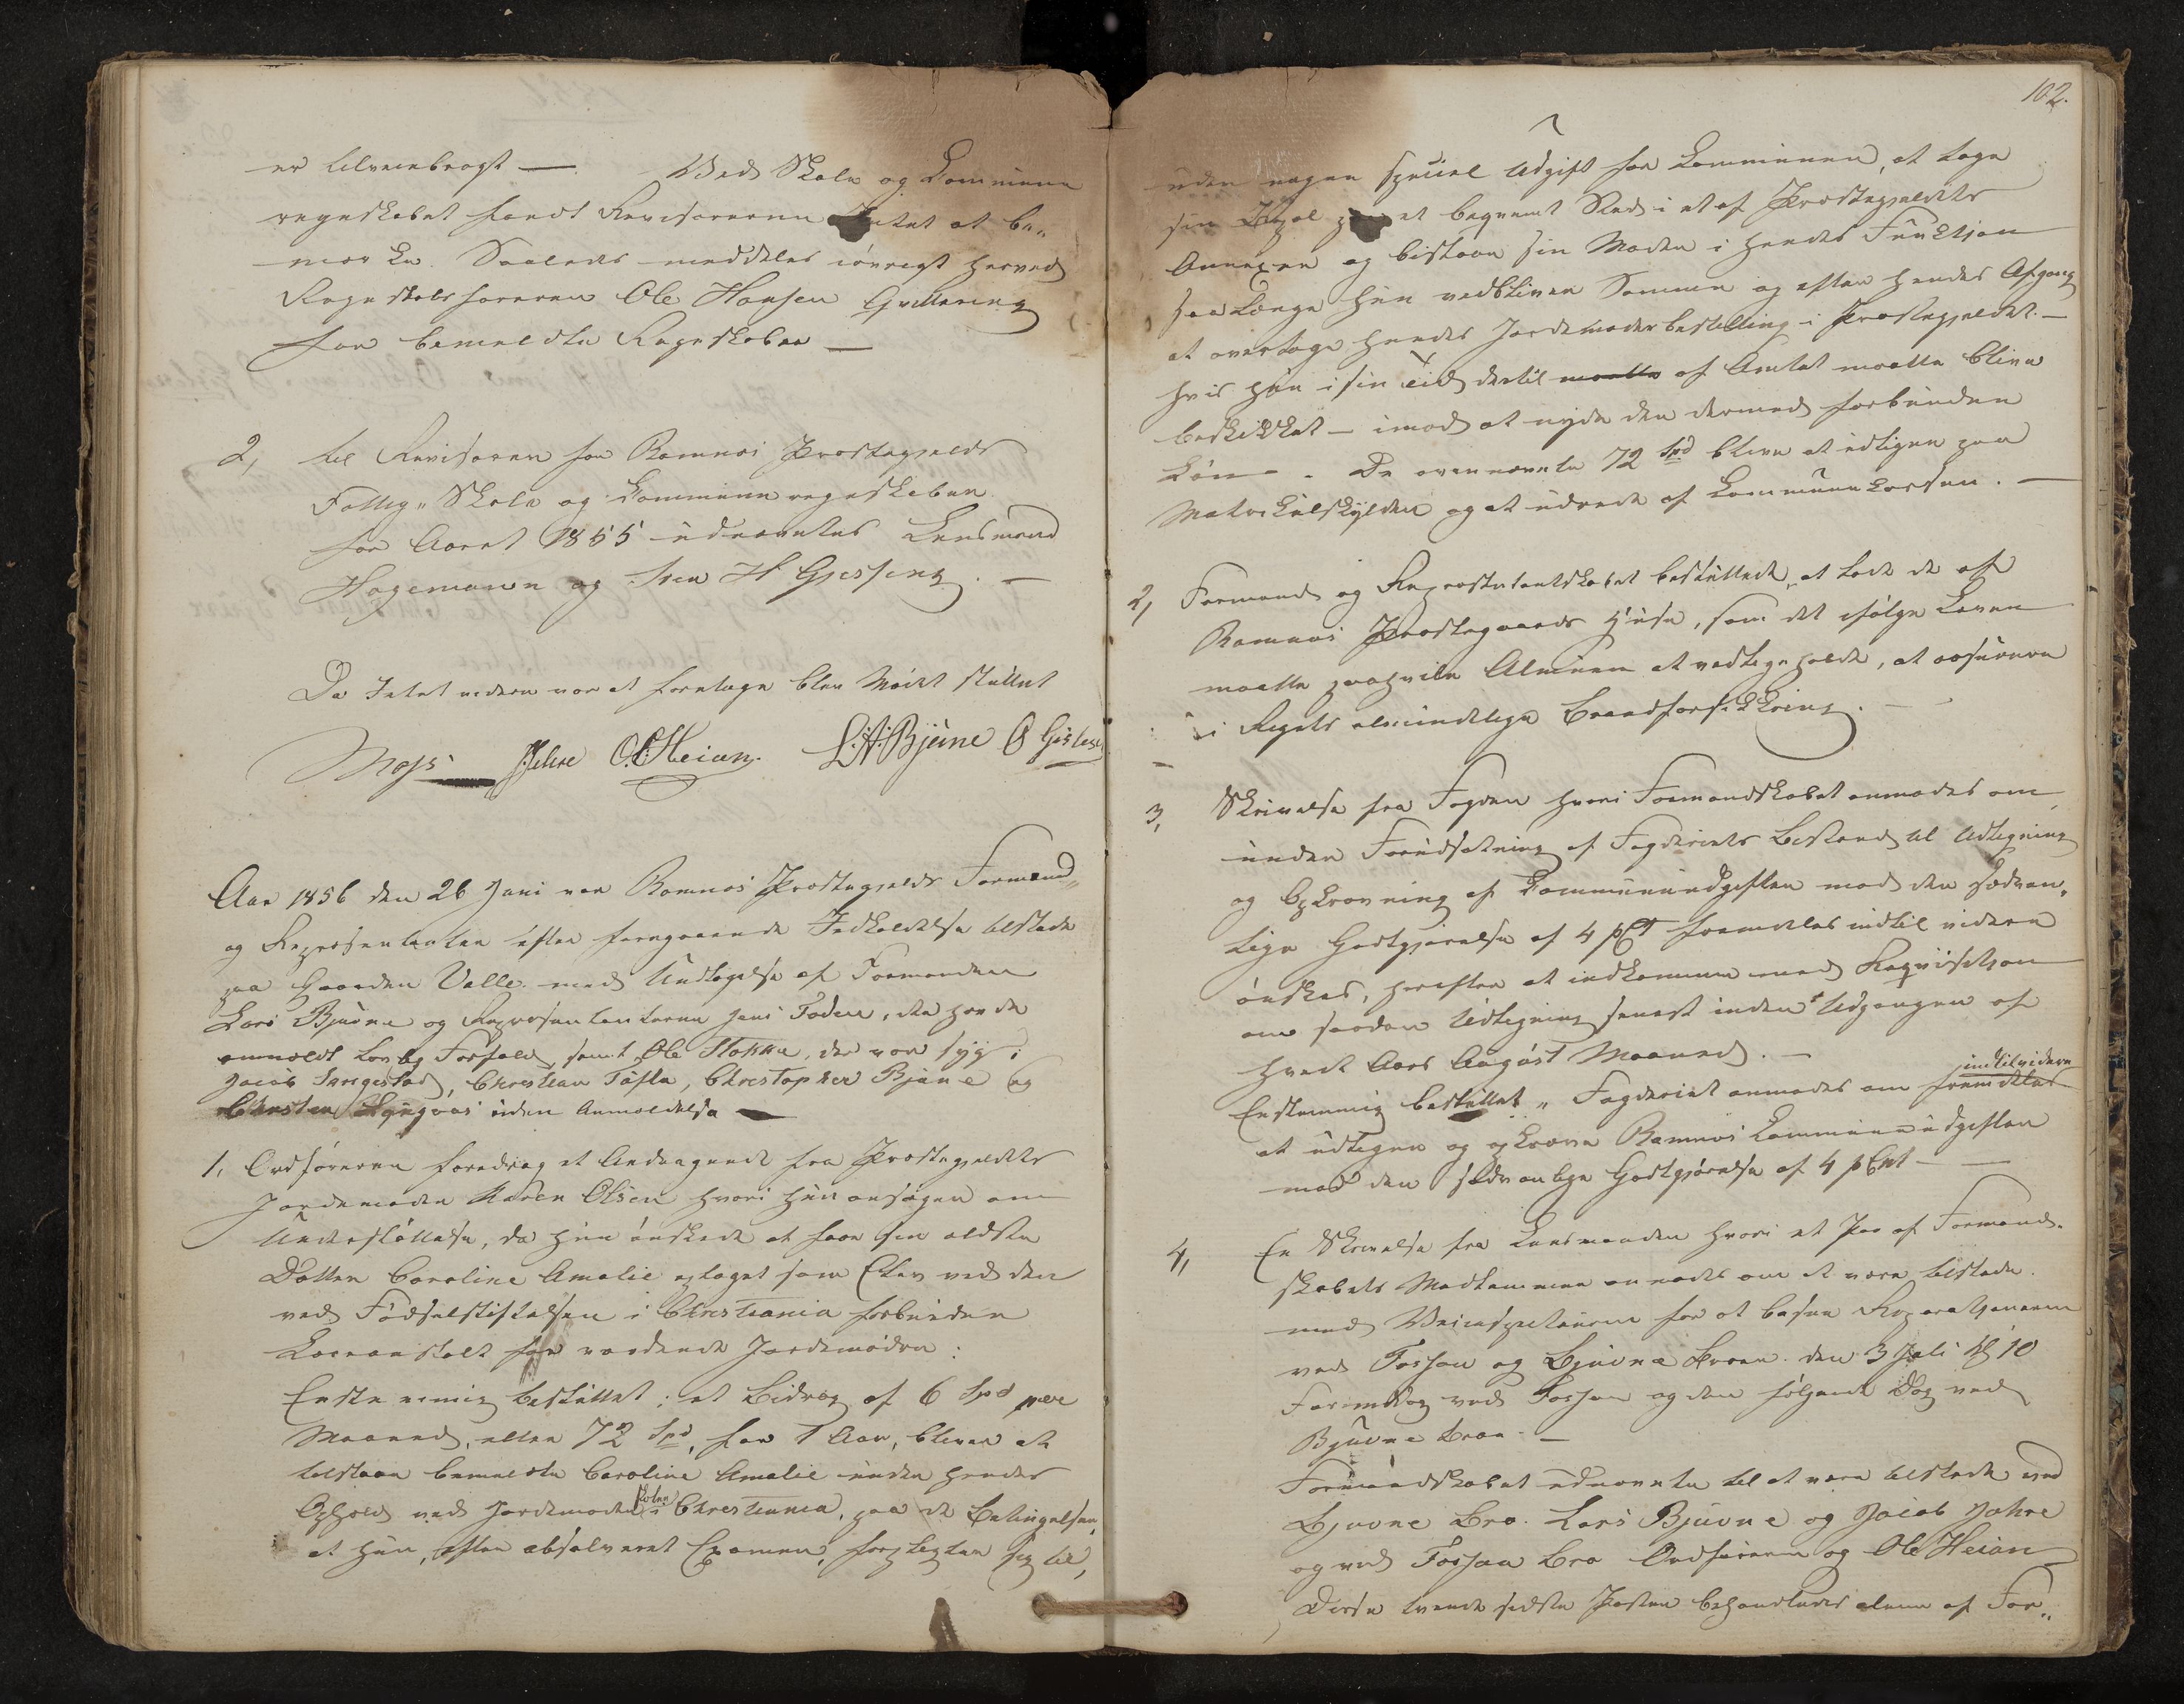 er tilveiebragt — Ved Skole og Commune
regnskabet fandt Revisorerne Intet at be-
mærke. Saaledes meddeles iøvrigt herved
Regnskabsføreren Ole Hansen Qvittering
for bemeldte Regnskaber —
2, til Revisorer for Ramnæs Præstegjelds
Fattig- Skole og Kommune regnskaber
for Aaret 1855 udnævntes Lensmand
Hagemann og Iver H Gjessing. —
Da Intet videre var at foretage blev Mødet sluttet
Moss Jahre O. C. Heian. L. A. Bjune O Gislesen
Aar 1856 den 26 Juni var Ramnæs Præstegjelds Formænd„
og Repræsentanter efter foregaaende Indkaldelse tilstede
paa Gaarden Valle med Undtagelse af Formanden
Lars Bjuvne og Repræsentanterne Jens Foden, der havde
anmeldt lovlig Forfald, samt Ole Stokke, der var syg;
Jacob Sengestad, Christian Tufte, Christopher Bjune og
Christen Lyngaas uden Anmeldelse —
1, Ordføreren foredrog et Andragende fra Præstegjeldets
Jordemoder Karen Olsen hvori hun ansøger om
Understøttelse, da hun ønskede at faae sin ældste
Datter Caroline Amalie optaget som Elev ved den
ved Fødselstiftelsen i Christiania forbundne
Læreanstalt for vordende Jordemødre:
Enstemmig besluttet: et Bidrag af 6 Spd per
Maaned, eller 72 Spd, for 1 Aar, bliver at
tilstaae bemeldte Caroline Amalie under hendes
Ophold ved Jordemoderskolen i Christiania, paa de Betingelser,
at hun, efter absolveret Examen, forpligter sig til,
102.
uden nogen speciel Udgift for Communen, at tage
sin Bopæl paa et beqvemt Sted i et af Præstegjeldets
Annexer og bistaae sin Moder i hendes Funktion
saa længe hun vedbliver Samme og efter hendes Afgang
at overtage hendes Jordemoderbestilling i Præstegjeldet. —
hvis hun i sin Tid dertil maatte af Amtet maatte blive
beskikket — imod at nyde den dermed forbundne
Løn —. De ovennævnte 72 Spd blive at udligne paa
Matrikulskylden og at udrede af Communekassen. —
2, Formænd og Repræsentantskabet besluttede at lade de af
Ramnæs Præstegaards Huse, som det ifølge Loven
maatte paahvile Almuen at vedligeholde, at assurere
i Rigets almindelige Brandforsikkring. —
3, Skrivelse fra Fogden hvori Formandskabet anmodes om,
under Forudsætning af Fogderiets Bistand til Udligning
og Opkrævning af Kommuneudgifter mod den sædvan„
lige Godtgjørelse af 4 pCt fremdeles indtil videre
ønskes, herefter at indkomme med Reqvisition
om saadan Udligning senest inden Udgangen af
hvert Aars August Maaned. —
Enstemmig besluttet „ Fogderiet anmodes om fremdeles indtilvidere
at udligne og opkræve Ramnæs Communeudgifter
mod den sædvanlige Godtgjørelse af 4 pCnt — —
4, En Skrivelse fra Lensmanden hvori et Par af Formand-
skabets Medlemmer anmodes om at være tilstede
med Veiinspecteuren for at besee Reparationerne
ved Fossan og Bjuvne Broer. den 3 Juli Kl 10
Formiddag ved Fossan og den følgende Dag ved
Bjuvne Broe. —
Formandskabet udnævnte til at være tilstede ved
Bjuvne Bro. Lars Bjuvne og Jacob Jahre
og ved Fossan Bro Ordføreren og Ole Heian
Disse tvende sidste Poster behandledes alene af For„